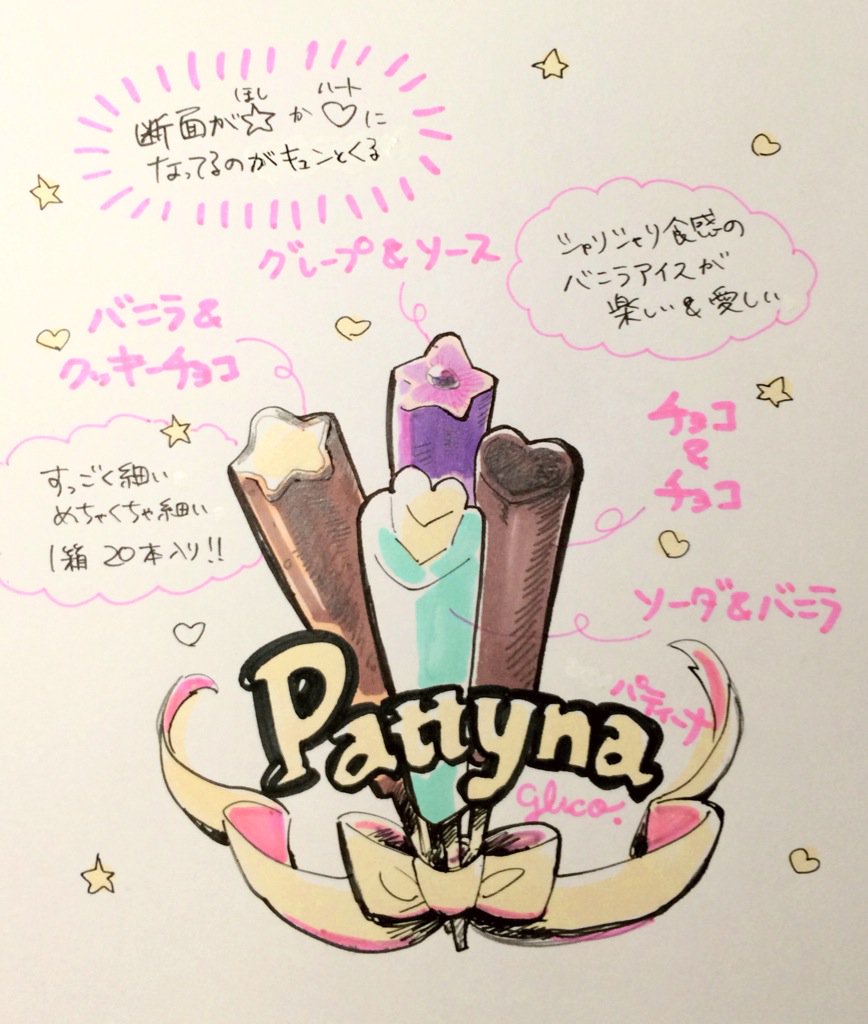 断面が☆か♡に
ほし ハート
なってるのがキュンとくる
グレープ&ソース
シャリシャリ食感の
バニラアイスが
楽しい&愛しい
バニラ&
クッキーチョコ
すっごく細い
めちゃくちゃ細い
1箱 20本入り!!
チョコ
&
チョコ
ソーダ&バニラ
Pattyna
パティーナ
glico.